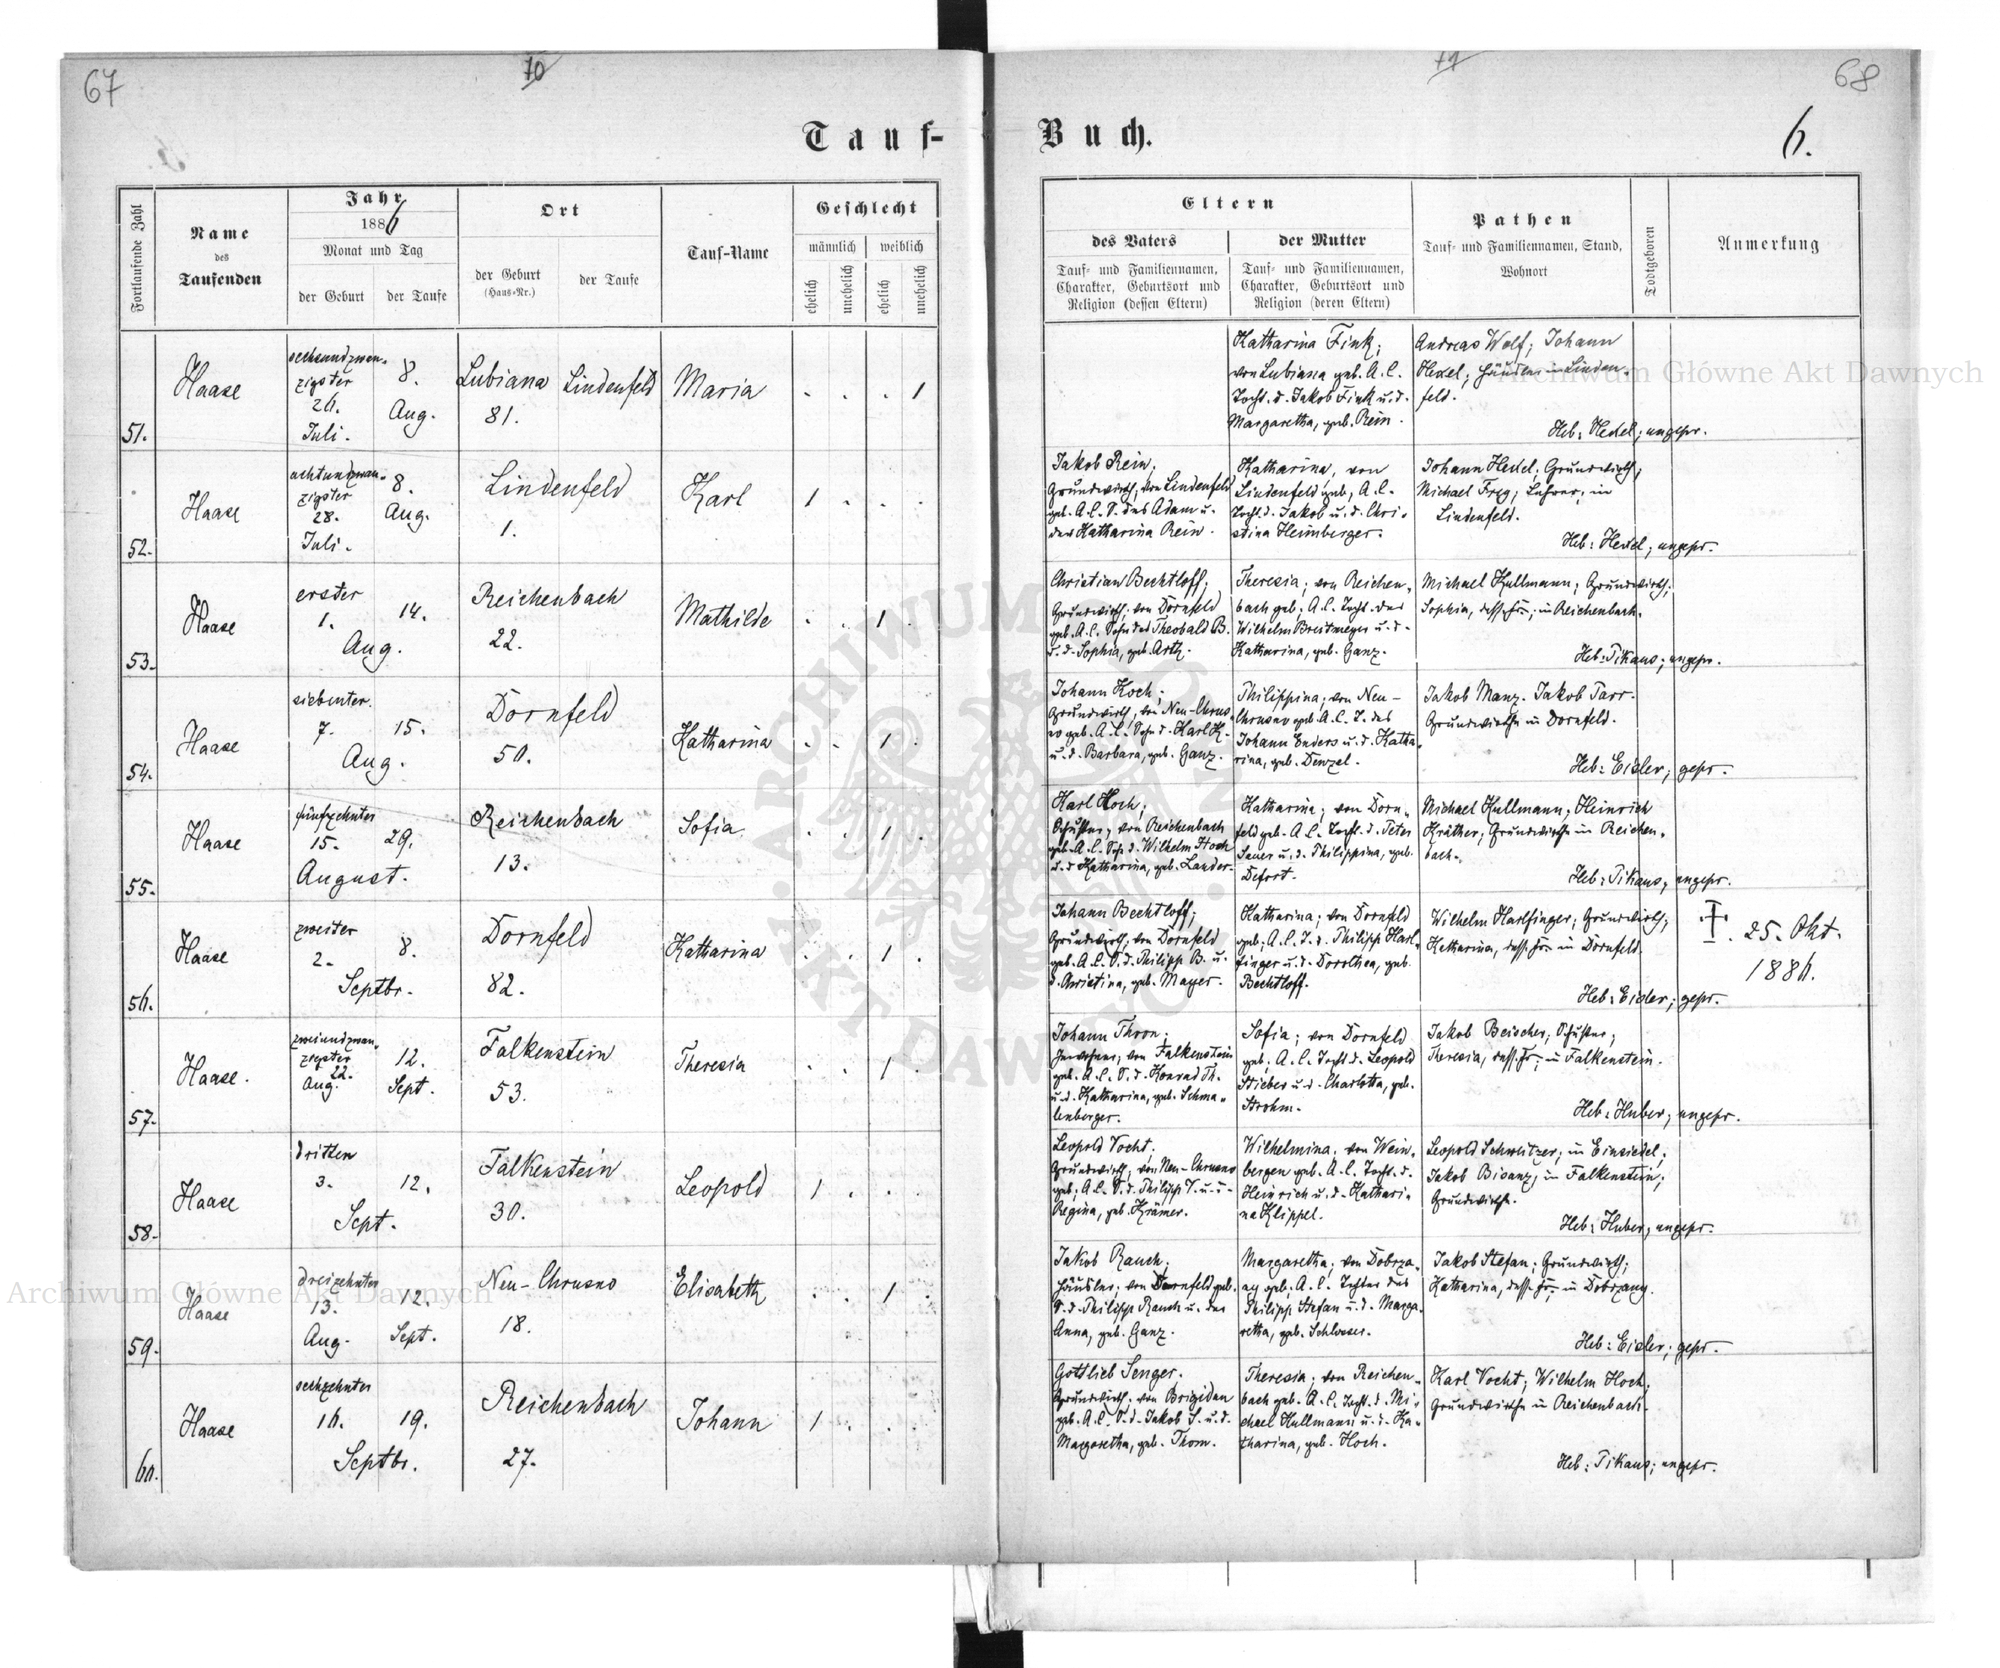 67
70
71
68
Tauf-
Buch.
6.
Fortlaufende Zahl
Name
des
Taufenden
Jahr
1886
Monat und Tag
der Geburt
der Taufe
Ort
der Geburt
(Haus-Nr.)
der Taufe
Tauf-Name
Geschlecht
männlich
weiblich
ehelich
unehelich
ehelich
unehelich
Eltern
des Vaters
Tauf- und Familiennamen,
Charakter, Geburtsort und
Religion (dessen Eltern)
der Mutter
Tauf- und Familiennamen,
Charakter, Geburtsort und
Religion (deren Eltern)
Pathen
Tauf- und Familiennamen, Stand,
Wohnort
Todtgeboren
Anmerkung
51.
Haase
sechsundzwan-
zigster
26.
Juli.
8.
Aug.
Lubiana
81.
Lindenfeld
Maria
. . . 1
Katharina Fink;
von Lubiana geb. A. C.
Tocht. d. Jakob Fink u. d.
Margaretha, geb. Rein.
Andreas Wolf; Johann
Hexel; Häusler in Linden-
feld.
Heb: Hexel; ungepr.
52.
Haase
achtundzwan-
zigster
28.
Juli.
8.
Aug.
Lindenfeld
1.
Karl
1 . . .
Jakob Rein;
Grundwirth, von Lindenfeld
geb. A. C. S. des Adam u.
der Katharina Rein.
Katharina, von
Lindenfeld geb. A. C.
Tocht. d. Jakob u. d. Chri-
stina Heimberger.
Johann Hexel; Grundwirth;
Michael Frey; Lehrer, in
Lindenfeld.
Heb: Hexel; ungepr.
53.
Haase
erster
1.
Aug.
14.
Reichenbach
22.
Mathilde
. . 1 .
Christian Bechtloff;
Grundwirth; von Dornfeld
geb. A. C. Sohn des Theobald B.
u. d. Sophia, geb. Artz.
Theresia; von Reichen-
bach geb. A. C. Tocht. des
Wilhelm Breitmeyer u. d.
Katharina, geb. Ganz.
Michael Kullmann; Grundwirth;
Sophia, dess. Fr.; in Reichenbach.
Heb: Pikaus; ungepr.
54.
Haase
siebenter
7.
Aug.
15.
Dornfeld
50.
Katharina
. . 1 .
Johann Koch;
Grundwirth, von Neu-Chrus-
no geb. A. C. Sohn d. Karl K.
u. d. Barbara, geb. Ganz.
Philippina; von Neu-
Chrusno geb. A. C. T. des
Johann Enders u. d. Katha-
rina, geb. Denzel.
Jakob Manz. Jakob Tarr.
Grundwirthe in Dornfeld.
Heb: Eisler; gepr.
55.
Haase
fünfzehnter
15.
August.
29.
Reichenbach
13.
Sofia
. . 1 .
Karl Hoch;
Schuster, von Reichenbach
geb. A. C. Sohn d. Wilhelm Hoch
u. d. Katharina, geb. Lander.
Katharina; von Dorn-
feld geb. A. C. Tocht. d. Peter
Sauer u. d. Philippina, geb.
Defort.
Michael Kullmann; Heinrich
Kräther; Grundwirthe in Reichen-
bach.
Heb: Pikaus; ungepr.
56.
Haase
zweiter
2.
Septbr.
8.
Dornfeld
82.
Katharina
. . 1 .
Johann Bechtloff;
Grundwirth; von Dornfeld
geb. A. C. S. d. Philipp B. u.
d. Christina, geb. Mayer.
Katharina; von Dornfeld
geb. A. C. T. d. Philipp Harl-
finger u. d. Dorothea, geb.
Bechtloff.
Wilhelm Harlfinger; Grundwirth;
Katharina, dess. Fr. in Dornfeld.
Heb: Eisler; gepr.
25. Okt.
1886.
57.
Haase.
zweiundzwan-
zigster
22.
Aug.
12.
Sept.
Falkenstein
53.
Theresia
. . 1 .
Johann Thron;
Inwohner; von Falkenstein
geb. A. C. S. d. Konrad Th.
u. d. Katharina, geb. Schma-
lenberger.
Sofia; von Dornfeld
geb. A. C. Tocht. d. Leopold
Stieber u. d. Charlotta, geb.
Strohm.
Jakob Beischer; Schuster;
Theresia, dess. Fr.; in Falkenstein.
Heb: Huber; ungepr.
58.
Haase
dritten
3.
Sept.
12.
Falkenstein
30.
Leopold
1 . . .
Leopold Vocht;
Grundwirth; von Neu-Chrusno
geb. A. C. S. d. Philipp V. u. d.
Regina, geb. Krämer.
Wilhelmina, von Wein-
bergen geb. A. C. Tocht. d.
Heinrich u. d. Kathari-
na Klippel.
Leopold Schweitzer; in Einsiedel;
Jakob Bisanz; in Falkenstein;
Grundwirthe.
Heb: Huber; ungepr.
59.
Haase
dreizehnter
13.
Aug.
12.
Sept.
Neu-Chrusno
18.
Elisabeth
. . 1 .
Jakob Rauch;
Häusler; von Dornfeld geb.
S. d. Philipp Rauch u. der
Anna, geb. Ganz.
Margaretha; von Dobrza-
ny geb. A. C. Tochter des
Philipp Stefan u. d. Marga-
retha, geb. Schlosser.
Jakob Stefan; Grundwirth;
Katharina, dess. Fr. in Dobrzany.
Heb: Eisler; gepr.
60.
Haase
sechzehnter
16.
Septbr.
19.
Reichenbach
27.
Johann
1 . . .
Gottlieb Senger.
Grundwirth; von Brigidau
geb. A. C. S. d. Jakob S. u. d.
Margaretha, geb. Thom.
Theresia; von Reichen-
bach geb. A. C. Tocht. d. Mi-
chael Kullmann u. d. Ka-
tharina, geb. Hoch.
Karl Vocht; Wilhelm Hoch;
Grundwirthe in Reichenbach.
Heb: Pikaus; ungepr.
Archiwum Główne Akt Dawnych
Archiwum Główne Akt Dawnych